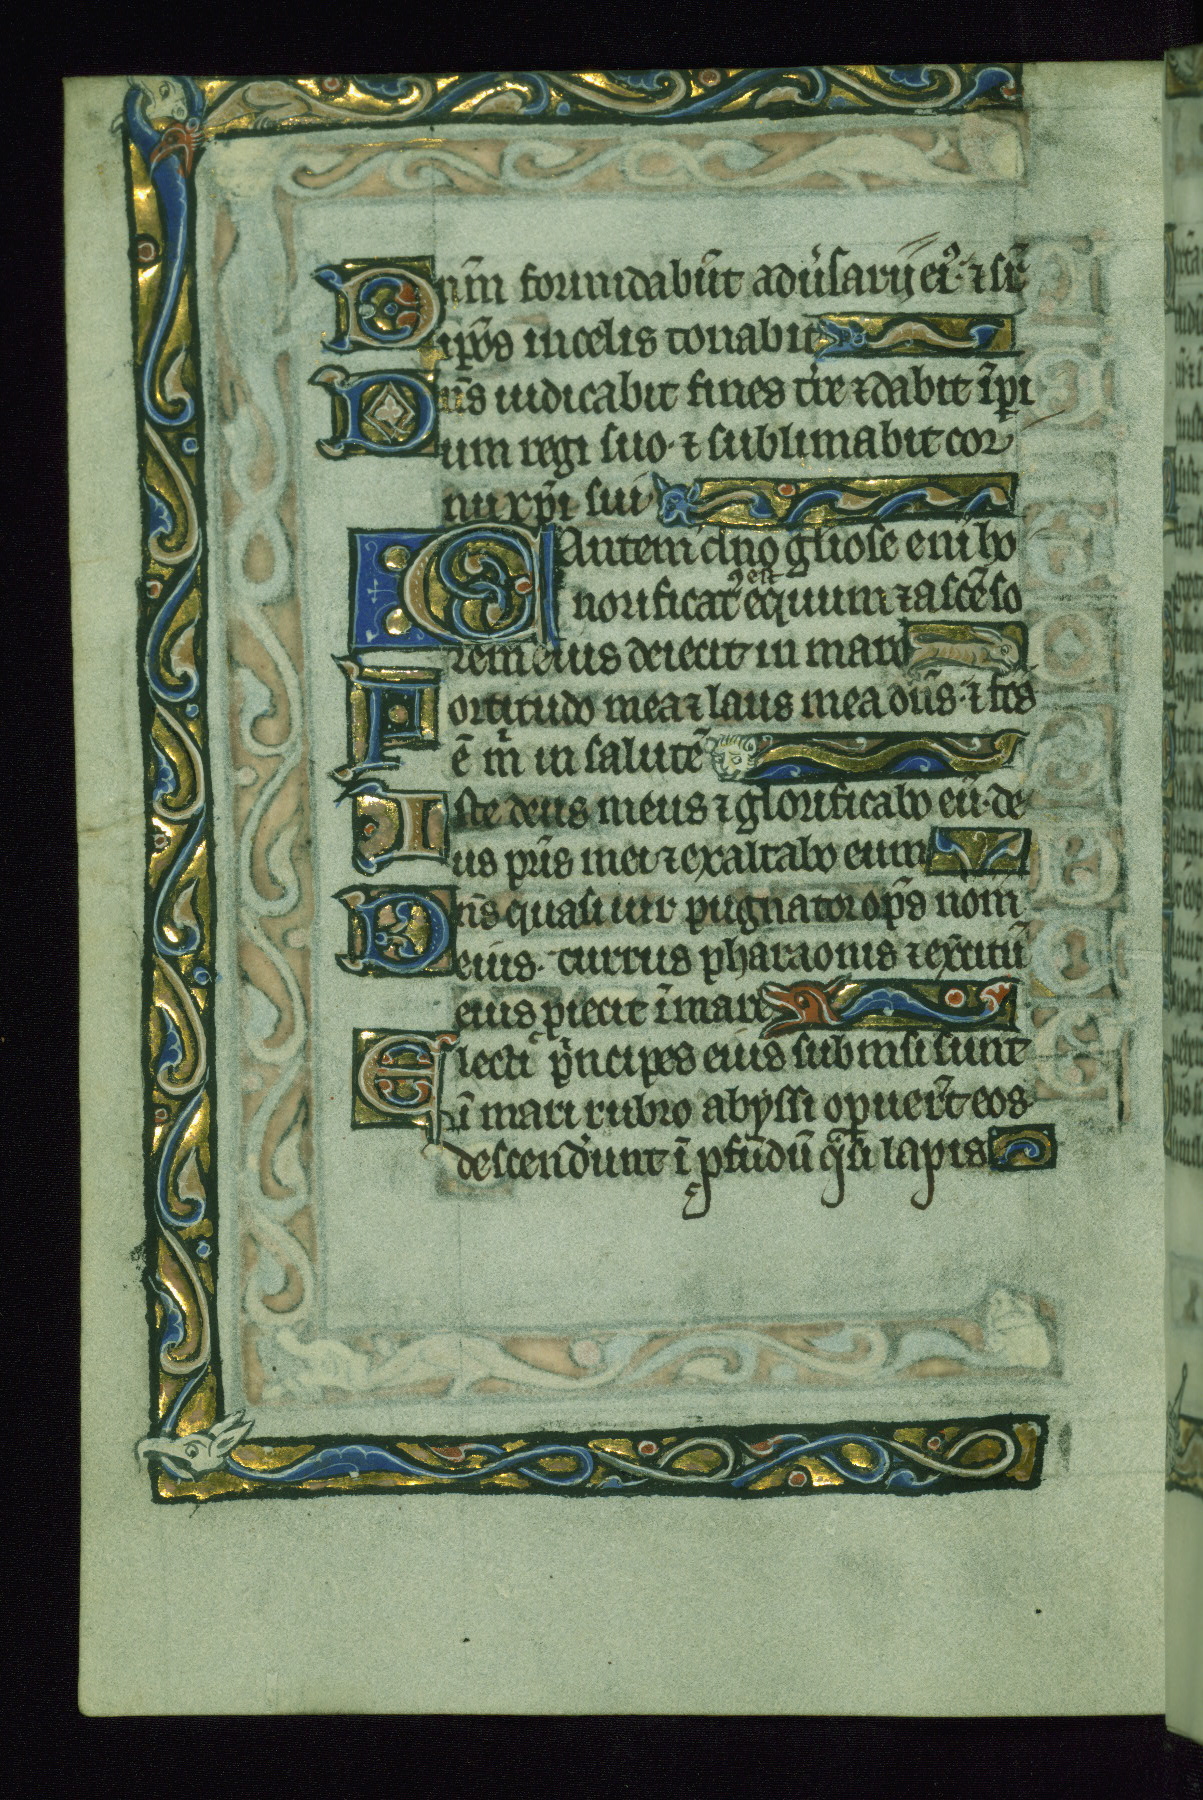 Dn̄m formidabūt aduˀsarij eiꝰ· ⁊ suꝑ
ip̄os in celis tonabit
Dn̄s iudicabit fines tr̄e ⁊ dabit īꝑi
um regi suo· ⁊ sublimabit cor
nu xp̄i sui
Cantemꝰ dn̄o gl̄iose enī ho
norificatꝰ ꝯest equum ⁊ ascēso
rem eius deiecit in mare
Fortitudo mea ⁊ laus mea dn̄s· ⁊ fc̄s
ē m̄ in salutē
Iste deus meus ⁊ glorificabo eū· de
us pr̄is mei ⁊ exaltabo eum
Dn̄s quasi uir pugnator op̄s nom̄
eius· currus pharaonis ⁊ exˀcitū
eius ꝓiecit ī mare
Electi pˀncipes eius submsi sunt
ī mari rubro abyssi oꝑuerˀt eos·
descendˀunt ī ꝓfūdū qˀsi lapis